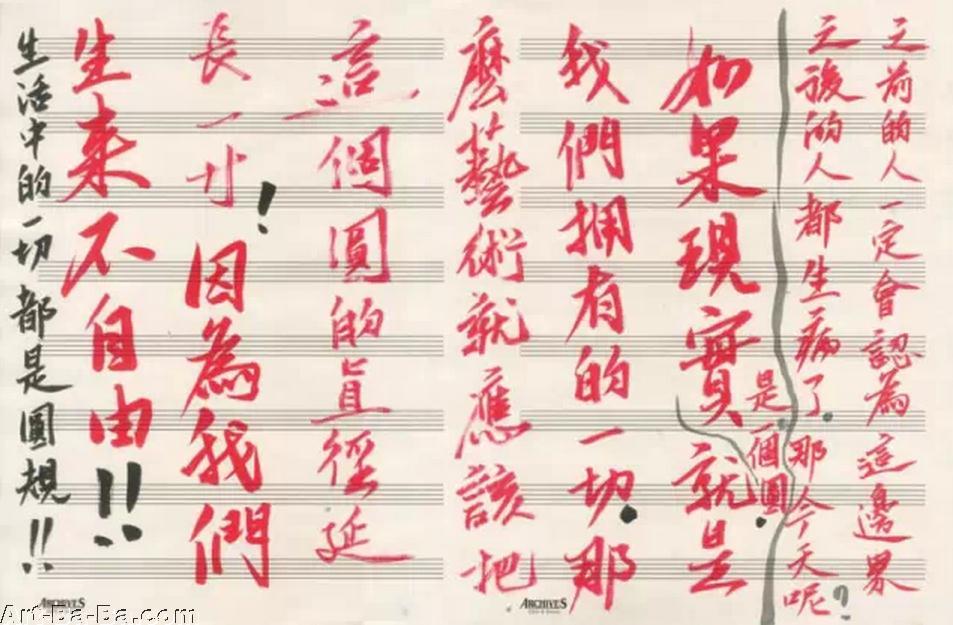 之前的人一定會認為這邊界
之後的人都生病了。那今天呢?
是一個圓.
如果現實就是
我們擁有的一切.那
麼藝術就應該把
這個圓的直徑延
長一寸!因為我們
生來不自由!!
生活中的一切都是圓規!!
ARCHIVES
ARCHIVES
Art-Ba-Ba.com